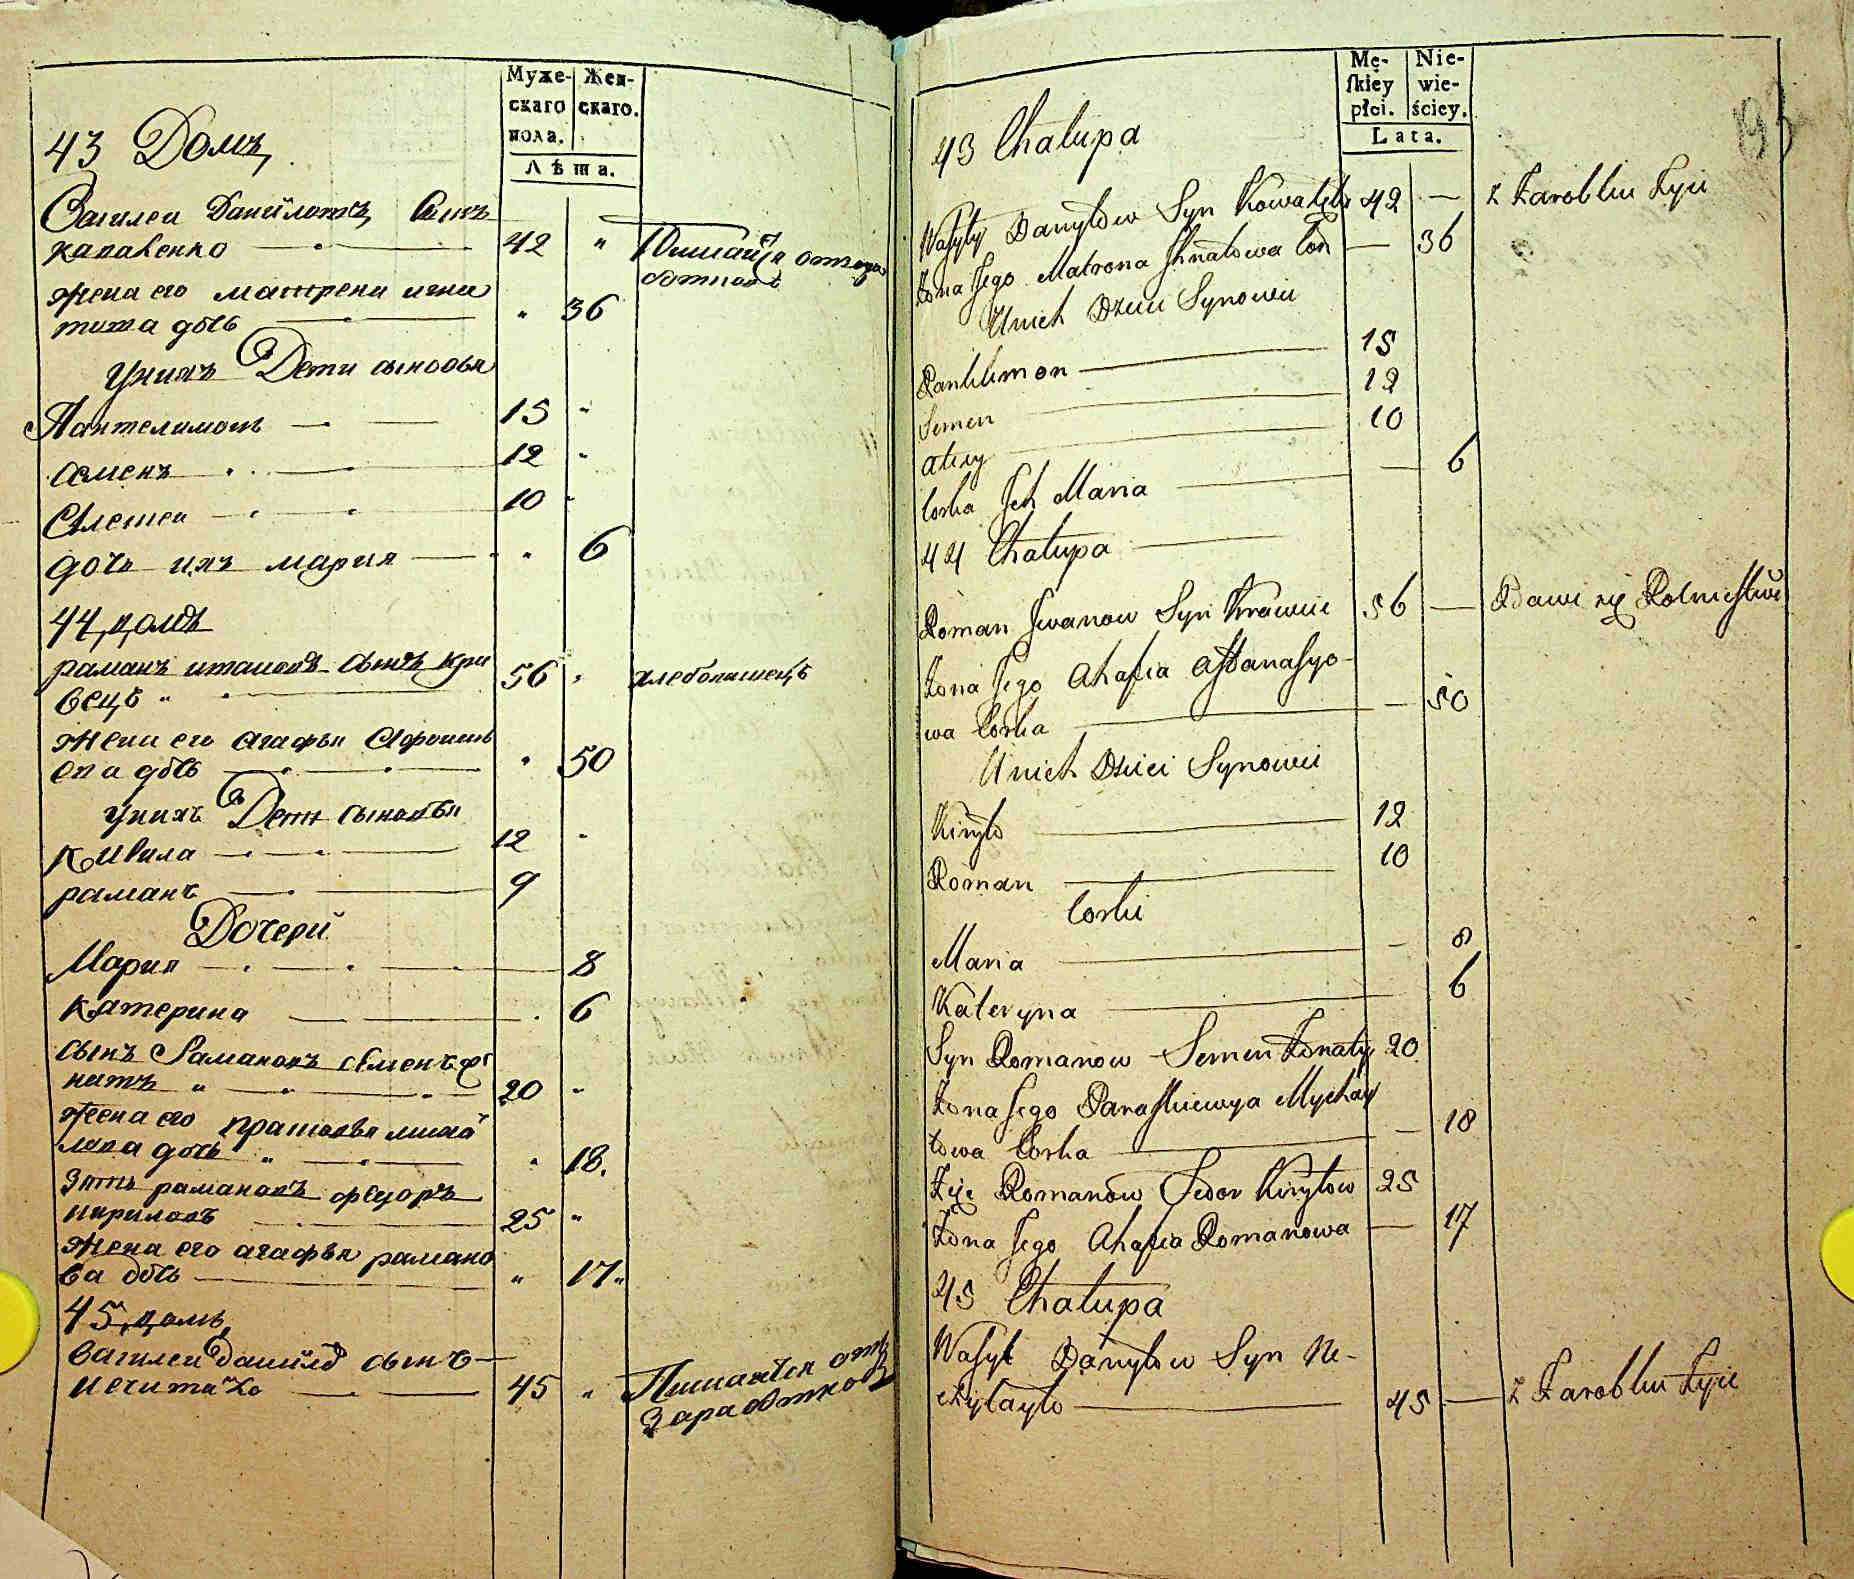 Муже- Жен-
скаго скаго.
пола.
Лѣта.
43 Домъ
Василеи Даниловъ Сынъ
каваленко 42 "
Питаица отзара
ботковъ
жена его матрена игна
това дочь " 36
унихъ Дети сыновья
Пантелимонъ 15 "
семенъ 12 "
Алексеи 10 "
дочь ихъ мария " 6
44, домъ
раманъ ивановъ сынъ кра
вецъ " 56 " хлебопашецъ
жена его агафья Афонась
ева дочь " 50
унихъ Дети сыновья
кирила 12 "
раманъ 9
Дочери
Мария 8
катерина 6
сынъ Рамановъ семенъ
натъ " 20 "
жена его прасковья михаи
лова дочь " " 18.
зять рамановъ федоръ
кириловъ 25 "
жена его агафья рамано
ва дочь " 17 "
45, домъ,
василеи данило сынъ
нечитайло 45 " Питается отъ
заработковъ
Mę- Nie-
ſkiey wie-
płci. ściey.
Lata.
193
43 Chałupa
Wasyly Danyłow Syn Kowalenko 42 — z Zarobku Żyie
Żona Jego Matrona Ihnatowa Cor — 36
Unich Dzieci Synowie
Pantelimon 15
Semen 12
Alexy 10
Corka Jch Maria — 6
44 Chałupa
Roman Jwanow Syn Krawiec 56 — Bawi się Rolnictwem
Żona Jego Ahafia Affanasyo-
wa Corka — 50
Unich Dzieci Synowie
Kiryło 12
Roman 10
Corki
Maria — 8
Kateryna 6
Syn Romanow Semen Żonaty 20
Żona Jego Paraskiewya Mychay
łowa Corka — 18
Zięc Romanow Fedor Kiryłow 25
Żona Jego Ahafia Romanowa — 17
45 Chałupa
Wasyl Danyłow Syn Ne-
czytayło 45 — z Zarobku Żyie